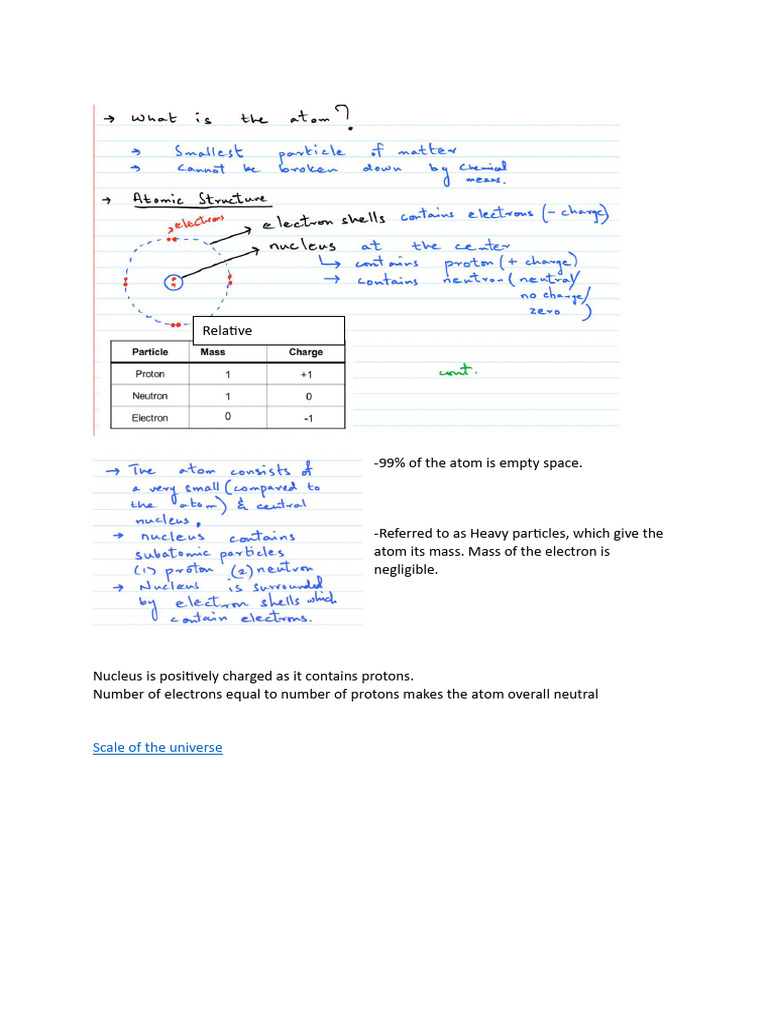 → What is the atom?
→ Smallest particle of matter
→ Cannot be broken down by chemical
means.
→ Atomic Structure
→ electrons
electron shells contains electrons (- charge)
nucleus at the center
↳ contains proton (+ charge)
→ contains neutron (neutral/
no charge/
zero)
Relative
Particle Mass Charge
Proton 1 +1
Neutron 1 0
Electron 0 -1
cont.
→ The atom consists of
a very small (compared to
the atom) & central
nucleus,
→ nucleus contains
subatomic particles
(1) proton (2) neutron
→ Nucleus is surrounded
by electron shells which
contain electrons.
-99% of the atom is empty space.
-Referred to as Heavy particles, which give the
atom its mass. Mass of the electron is
negligible.
Nucleus is positively charged as it contains protons.
Number of electrons equal to number of protons makes the atom overall neutral
Scale of the universe